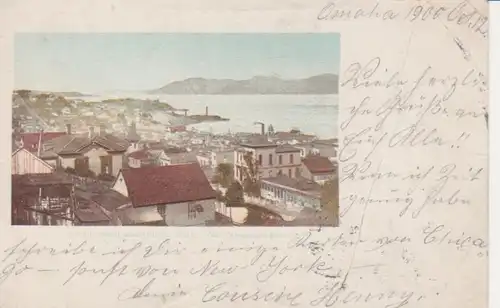 Omaha 1900 Oct. 12
Viele herzli-
che Grüße an
Euch Alle!!
Wenn ich Zeit
genug habe
schreibe ich Dir einige Karten von Chica-
go – von New York.
Deine Cousine Henny.